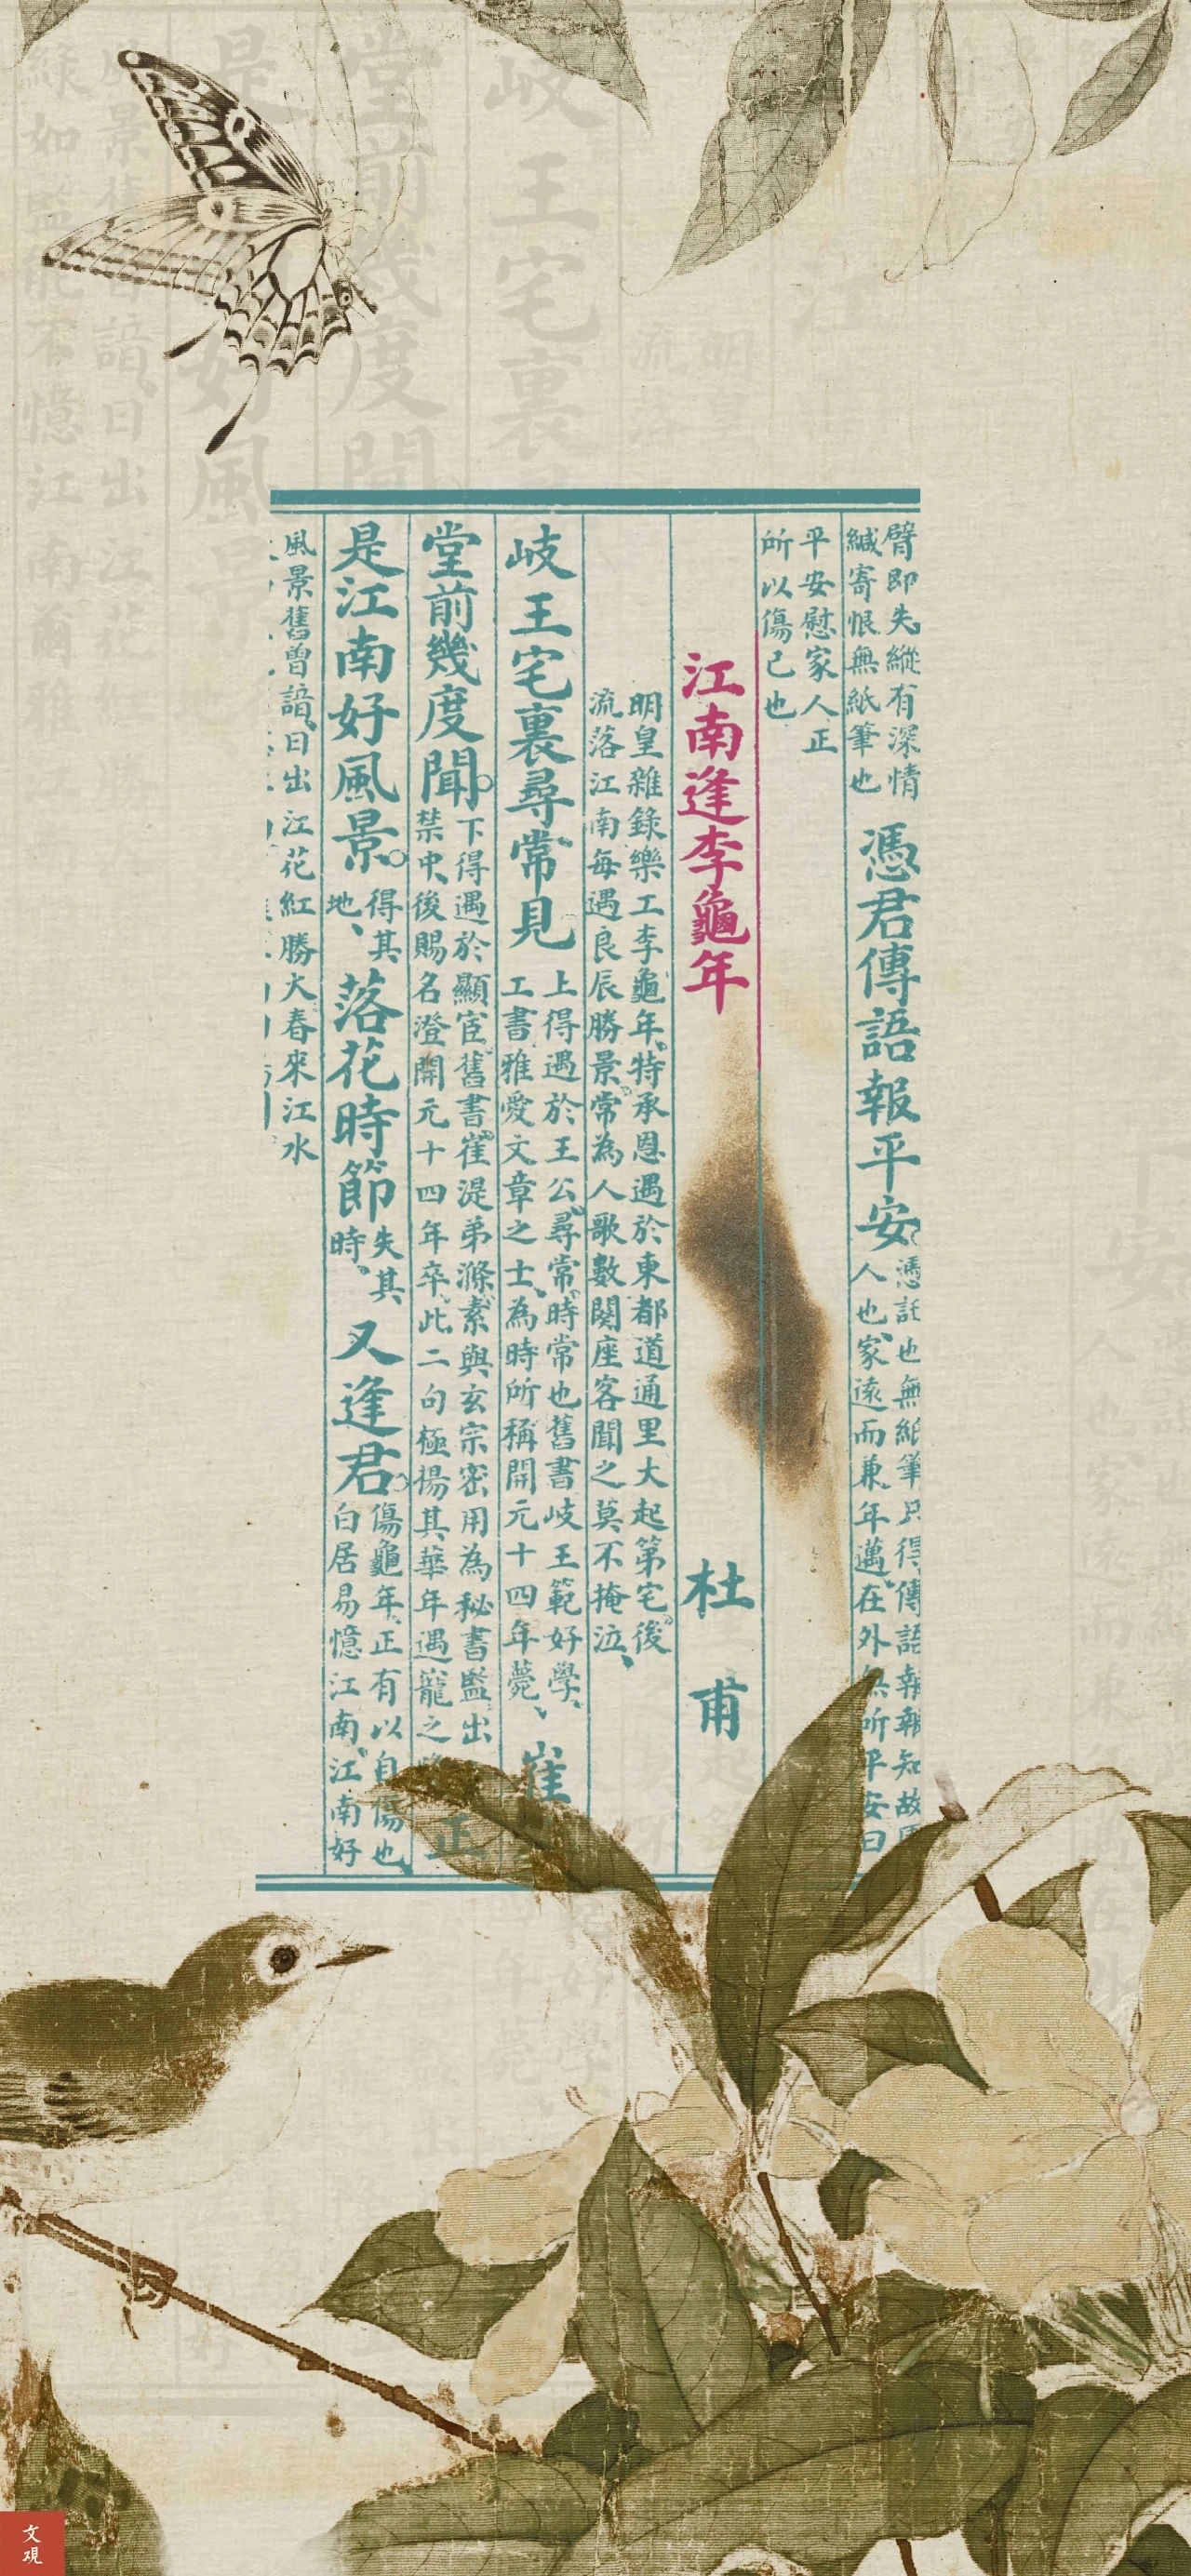 臂即失縱有深情
緘寄恨無紙筆也
憑君傳語報平安
憑託也無紙筆只得傳語報報知故
人也家遠而兼年邁在外無所平安曰
平安慰家人正
所以傷己也
江南逢李龜年
杜甫
明皇雜錄樂工李龜年特承恩遇於東都道通里大起第宅後
流落江南每遇良辰勝景常為人歌數闋座客聞之莫不掩泣、
岐王宅裏尋常見
上得遇於王公尋常時常也舊書岐王範好學、
工書雅愛文章之士、為時所稱開元十四年薨、
崔
堂前幾度聞。
下得遇於顯宦舊書崔湜弟滌素與玄宗密用為秘書監出
禁中後賜名澄開元十四年卒、此二句極揚其華年遇寵之
正
是江南好風景。
得其
地、
落花時節
失其
時。
又逢君。
傷龜年正有以自傷也、
白居易憶江南、江南好
風景舊曾諳、日出江花紅勝火春來江水
文观